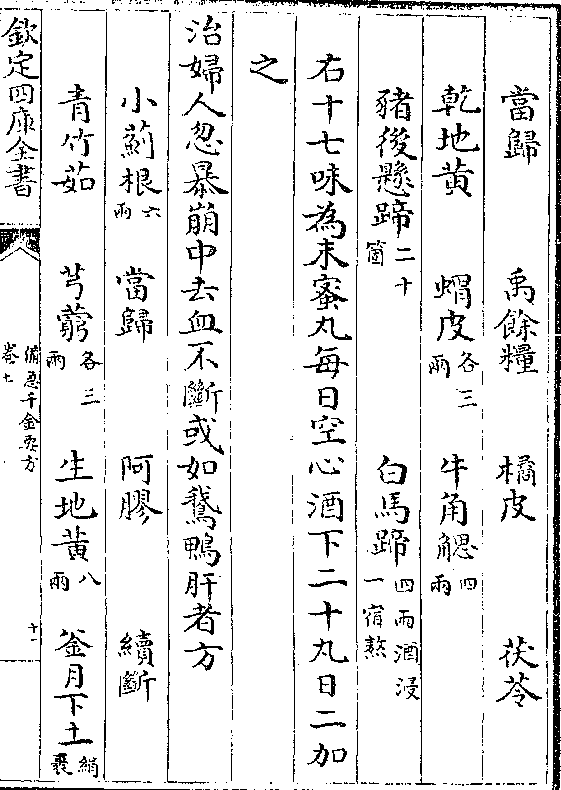 當歸 禹餘糧 橘皮 茯苓
乾地黄 蝟皮各三兩 牛角䚡四兩
豬後懸蹄二十箇 白馬蹄四兩酒浸一宿熬
右十七味為末蜜丸每日空心酒下二十丸日二加
之
治婦人忽暴崩中去血不斷或如鵝鴨肝者方
小薊根六兩 當歸 阿膠 續斷
青竹茹 芎藭各三兩 生地黄八兩 釜月下土絹裹
欽定四庫全書
備急千金要方
卷十
十二